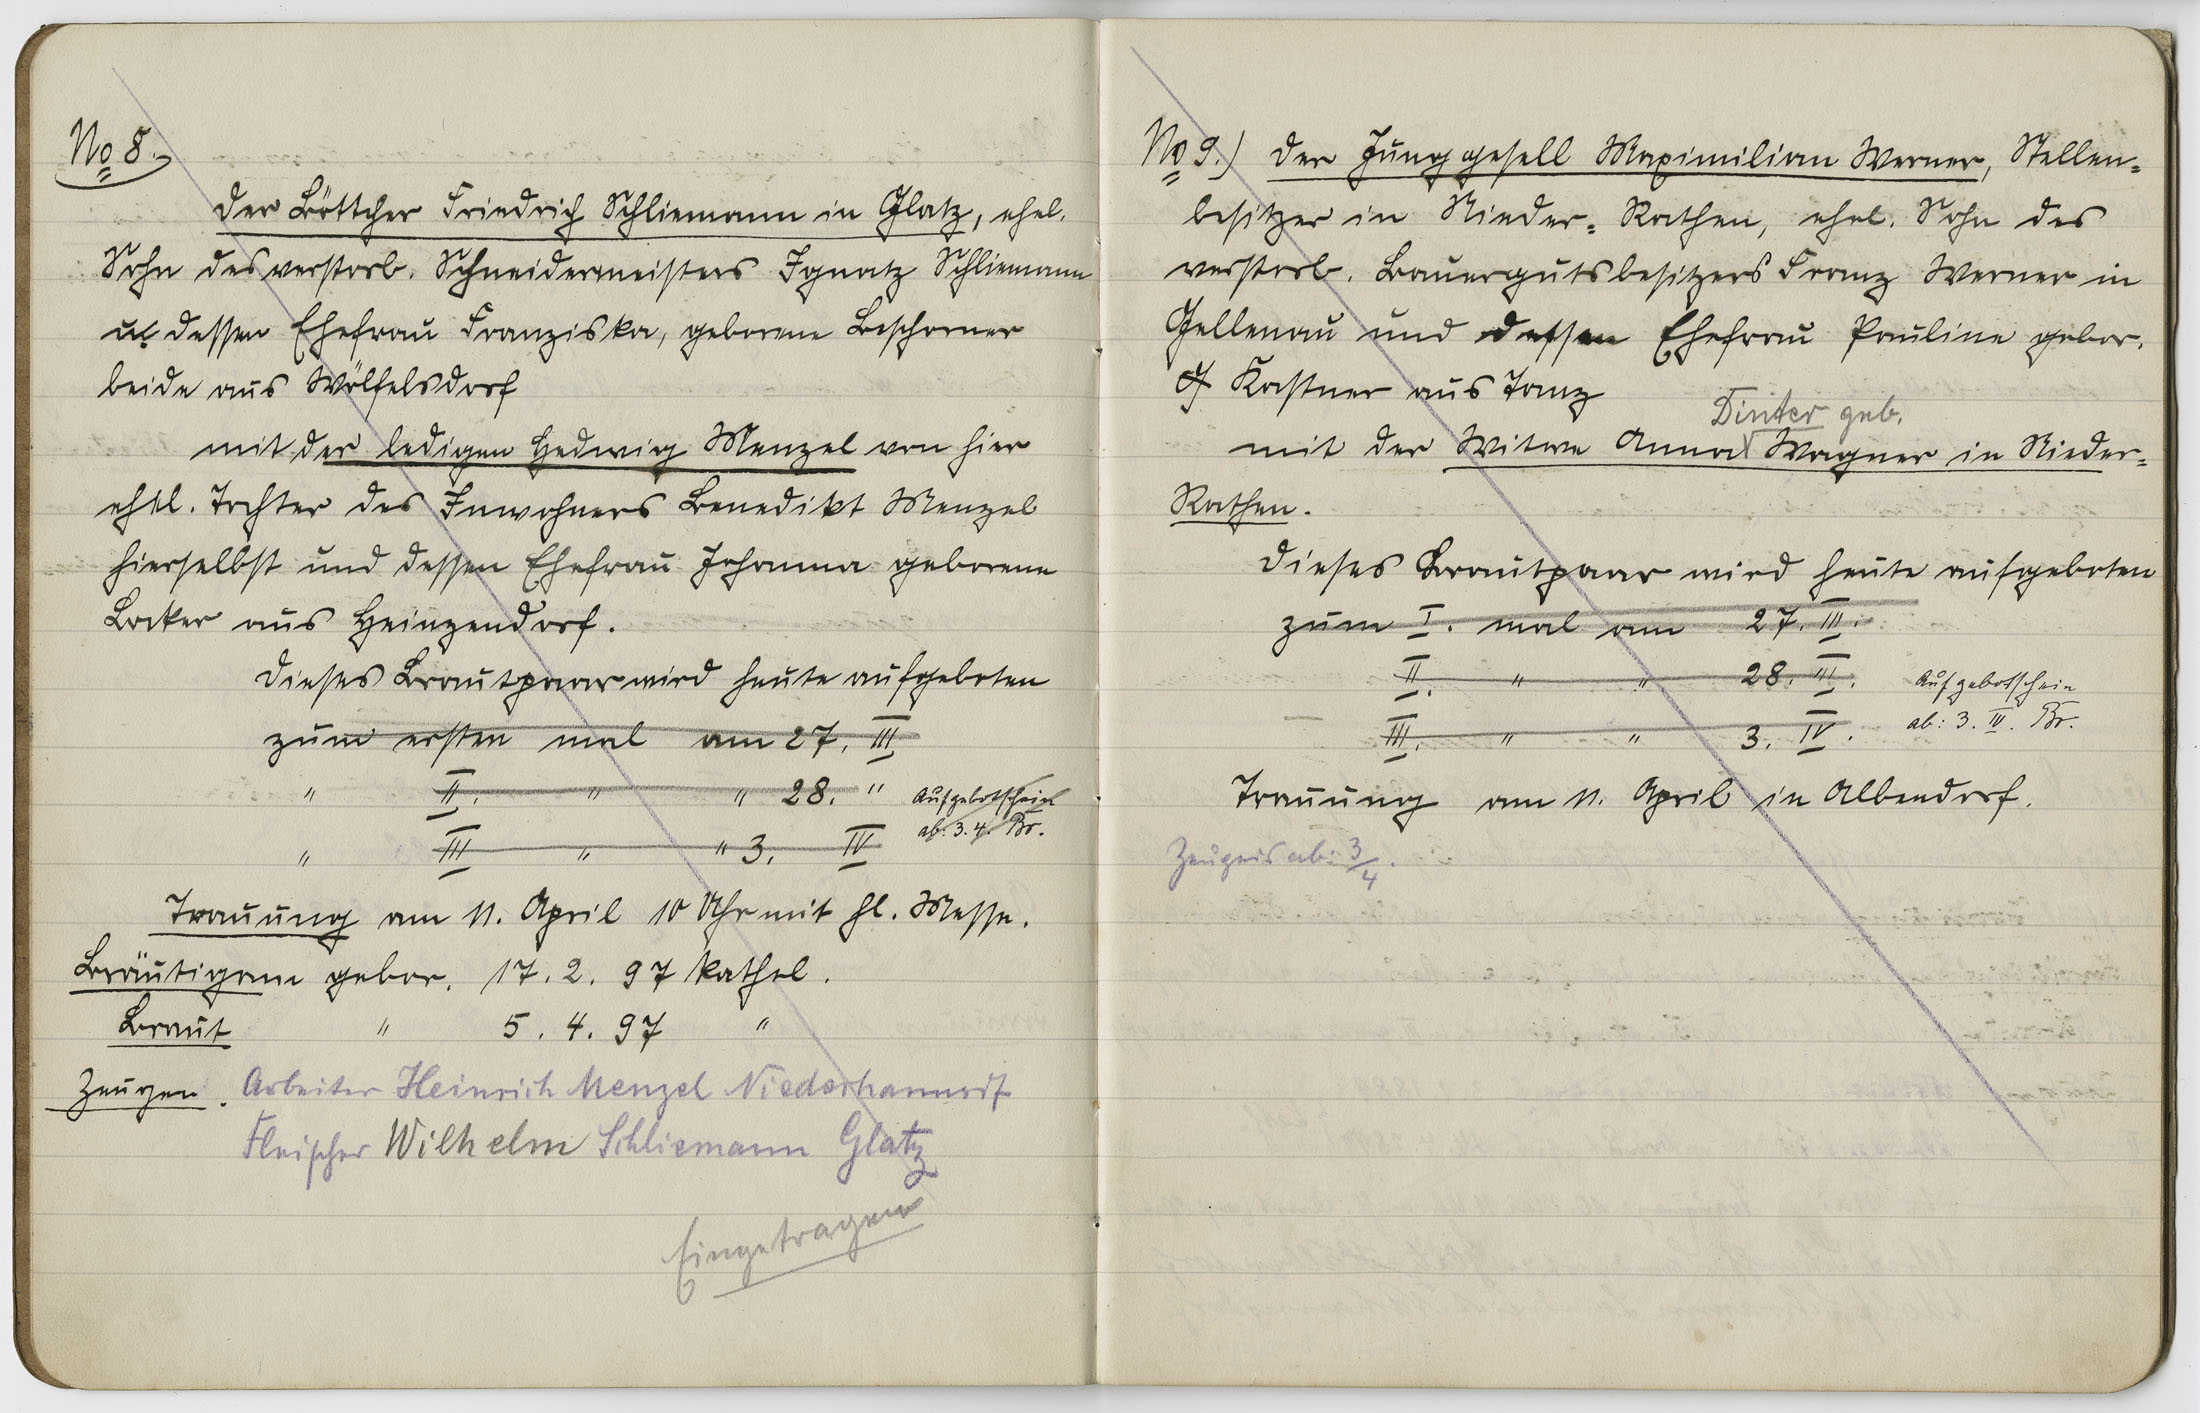 No 8.
Der Böttcher Friedrich Schliemann in Glatz, ehel.
Sohn des verstorb. Schneidermeisters Ignatz Schliemann
u. dessen Ehefrau Franziska, geborene Beschorner
beide aus Wölfelsdorf
mit der ledigen Hedwig Menzel von hier
ehel. Tochter des Inwohners Benedikt Menzel
hierselbst und dessen Ehefrau Johanna geborene
Locker aus Heinzendorf.
Dieses Brautpaar wird heute aufgeboten
zum ersten mal am 27. III
" II. " " 28. " Aufgebotschein
" III " " 3. IV ab: 3.4. Br.
Trauung am 11. April 10 Uhr mit hl. Messe.
Bräutigam gebor. 17. 2. 97 kathol.
Braut " 5. 4. 97 "
Zeugen. Arbeiter Heinrich Menzel Niederhannsdf
Fleischer Wilhelm Schliemann Glatz
Eingetragen
No 9.) Der Junggesell Maximilian Werner, Stellen=
besitzer in Nieder=Rathen, ehel. Sohn des
verstorb. Bauergutsbesitzers Franz Werner in
Gellenau und dessen Ehefrau Pauline gebor.
Kastner aus Tanz
Dinter geb.
mit der Witwe Anna Wagner in Nieder=
Rathen.
Dieses Brautpaar wird heute aufgeboten
zum I. mal am 27. III.
II. " " 28. III. Aufgebotschein
III. " " 3. IV. ab: 3. IV. Br.
Trauung am 11. April in Albendorf.
Zeugnis ab: 3/4.